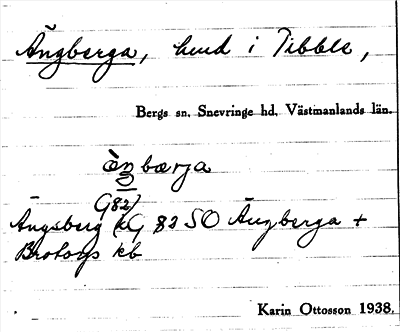 Ängberga, hmd i Tibble,
Bergs sn. Snevringe hd. Västmanlands län.
bærja
G82)
Ängsberg kG 82 SO Ängberga +
Brotorps kb
Karin Ottosson 1938.